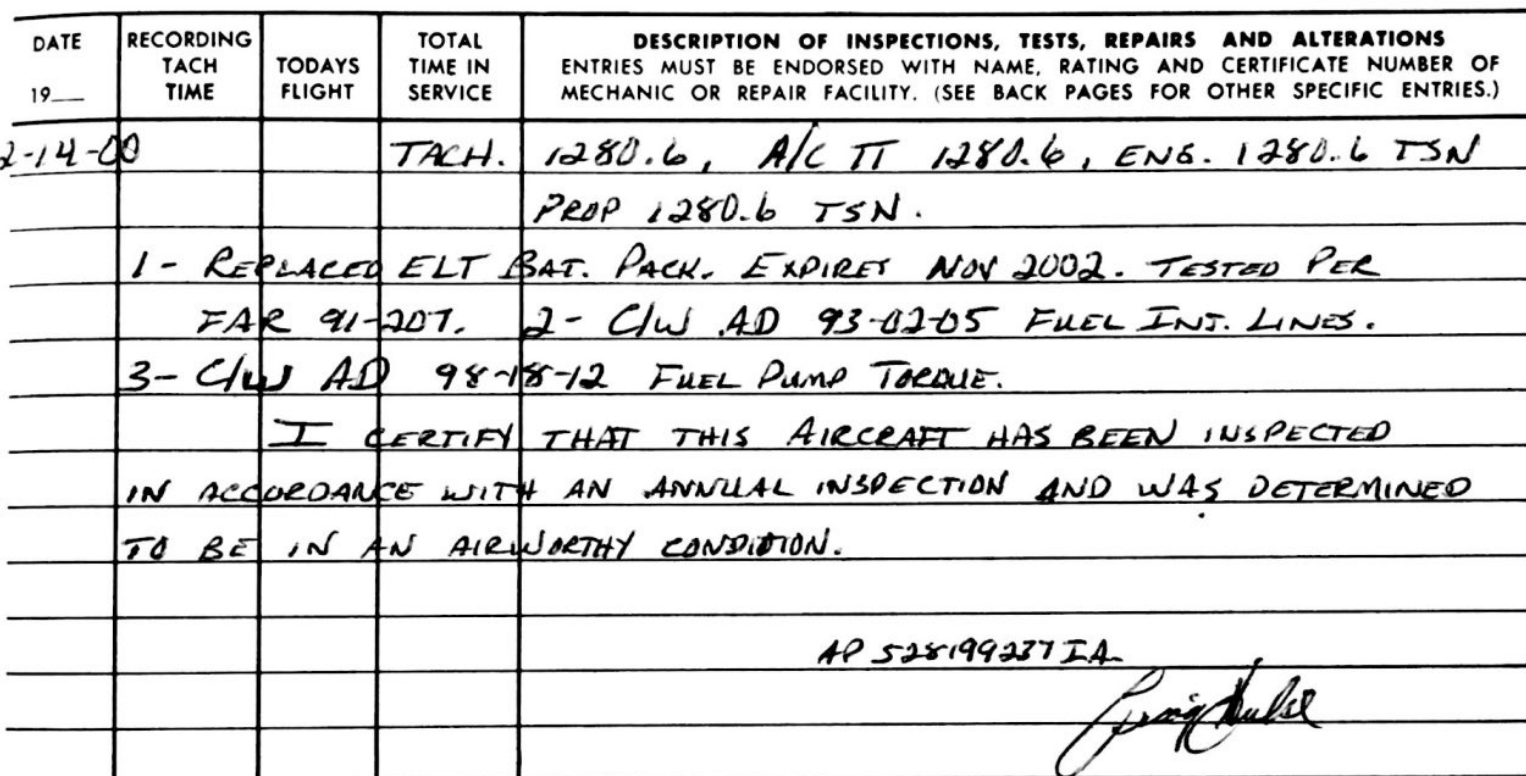 DATE
19__
RECORDING
TACH
TIME
TODAYS
FLIGHT
TOTAL
TIME IN
SERVICE
DESCRIPTION OF INSPECTIONS, TESTS, REPAIRS AND ALTERATIONS
ENTRIES MUST BE ENDORSED WITH NAME, RATING AND CERTIFICATE NUMBER OF
MECHANIC OR REPAIR FACILITY. (SEE BACK PAGES FOR OTHER SPECIFIC ENTRIES.)
2-14-00 TACH. 1280.6, A/C TT 1280.6, ENG. 1280.6 TSN
PROP 1280.6 TSN.
1- REPLACED ELT BAT. PACK. EXPIRES NOV 2002. TESTED PER
FAR 91-207. 2- C/W AD 93-02-05 FUEL INJ. LINES.
3- C/W AD 98-18-12 FUEL PUMP TORQUE.
I CERTIFY THAT THIS AIRCRAFT HAS BEEN INSPECTED
IN ACCORDANCE WITH AN ANNUAL INSPECTION AND WAS DETERMINED
TO BE IN AN AIRWORTHY CONDITION.
AP 528199237 I.A.